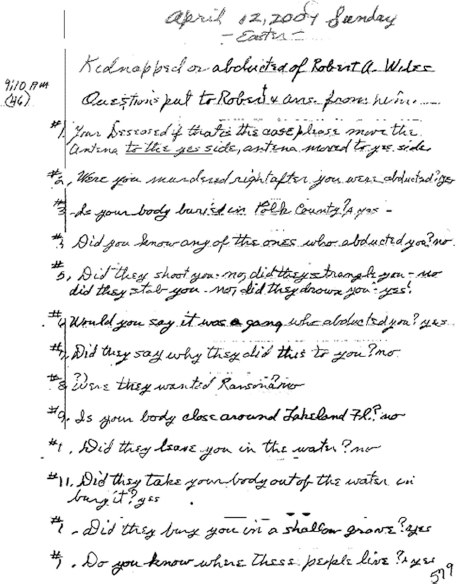 April 12, 2009 Sunday
- Easter -
9:10 AM
(46)
Kednapped or abducted of Robert A. Wiles
Questions put to Robert & ans. from him.....
#1, Your Deseased if thats the case please move the
Antena to the yes side, antena moved to yes side
#2, Were you murdered right after you were abducted? yes
#3 - Is your body buried in Polk County? A yes -
#. Did you know any of the ones who abducted you? no.
#5, Did they shoot you - no, did they strangle you - no
did they stab you - no, did they drown you - yes!
# Would you say it was a gang who abducted you? yes.
#7, Did they say why they did this to you? no.
#8 Were they wanted Ransom? no
#9. Is your body close around Lakeland Fl.? no
#1. Did they leave you in the water? no
#11. Did they take your body out of the water an
bury it? yes
# - Did they bury you in a shallow grave? yes
#. Do you know where these people live? A yes
579